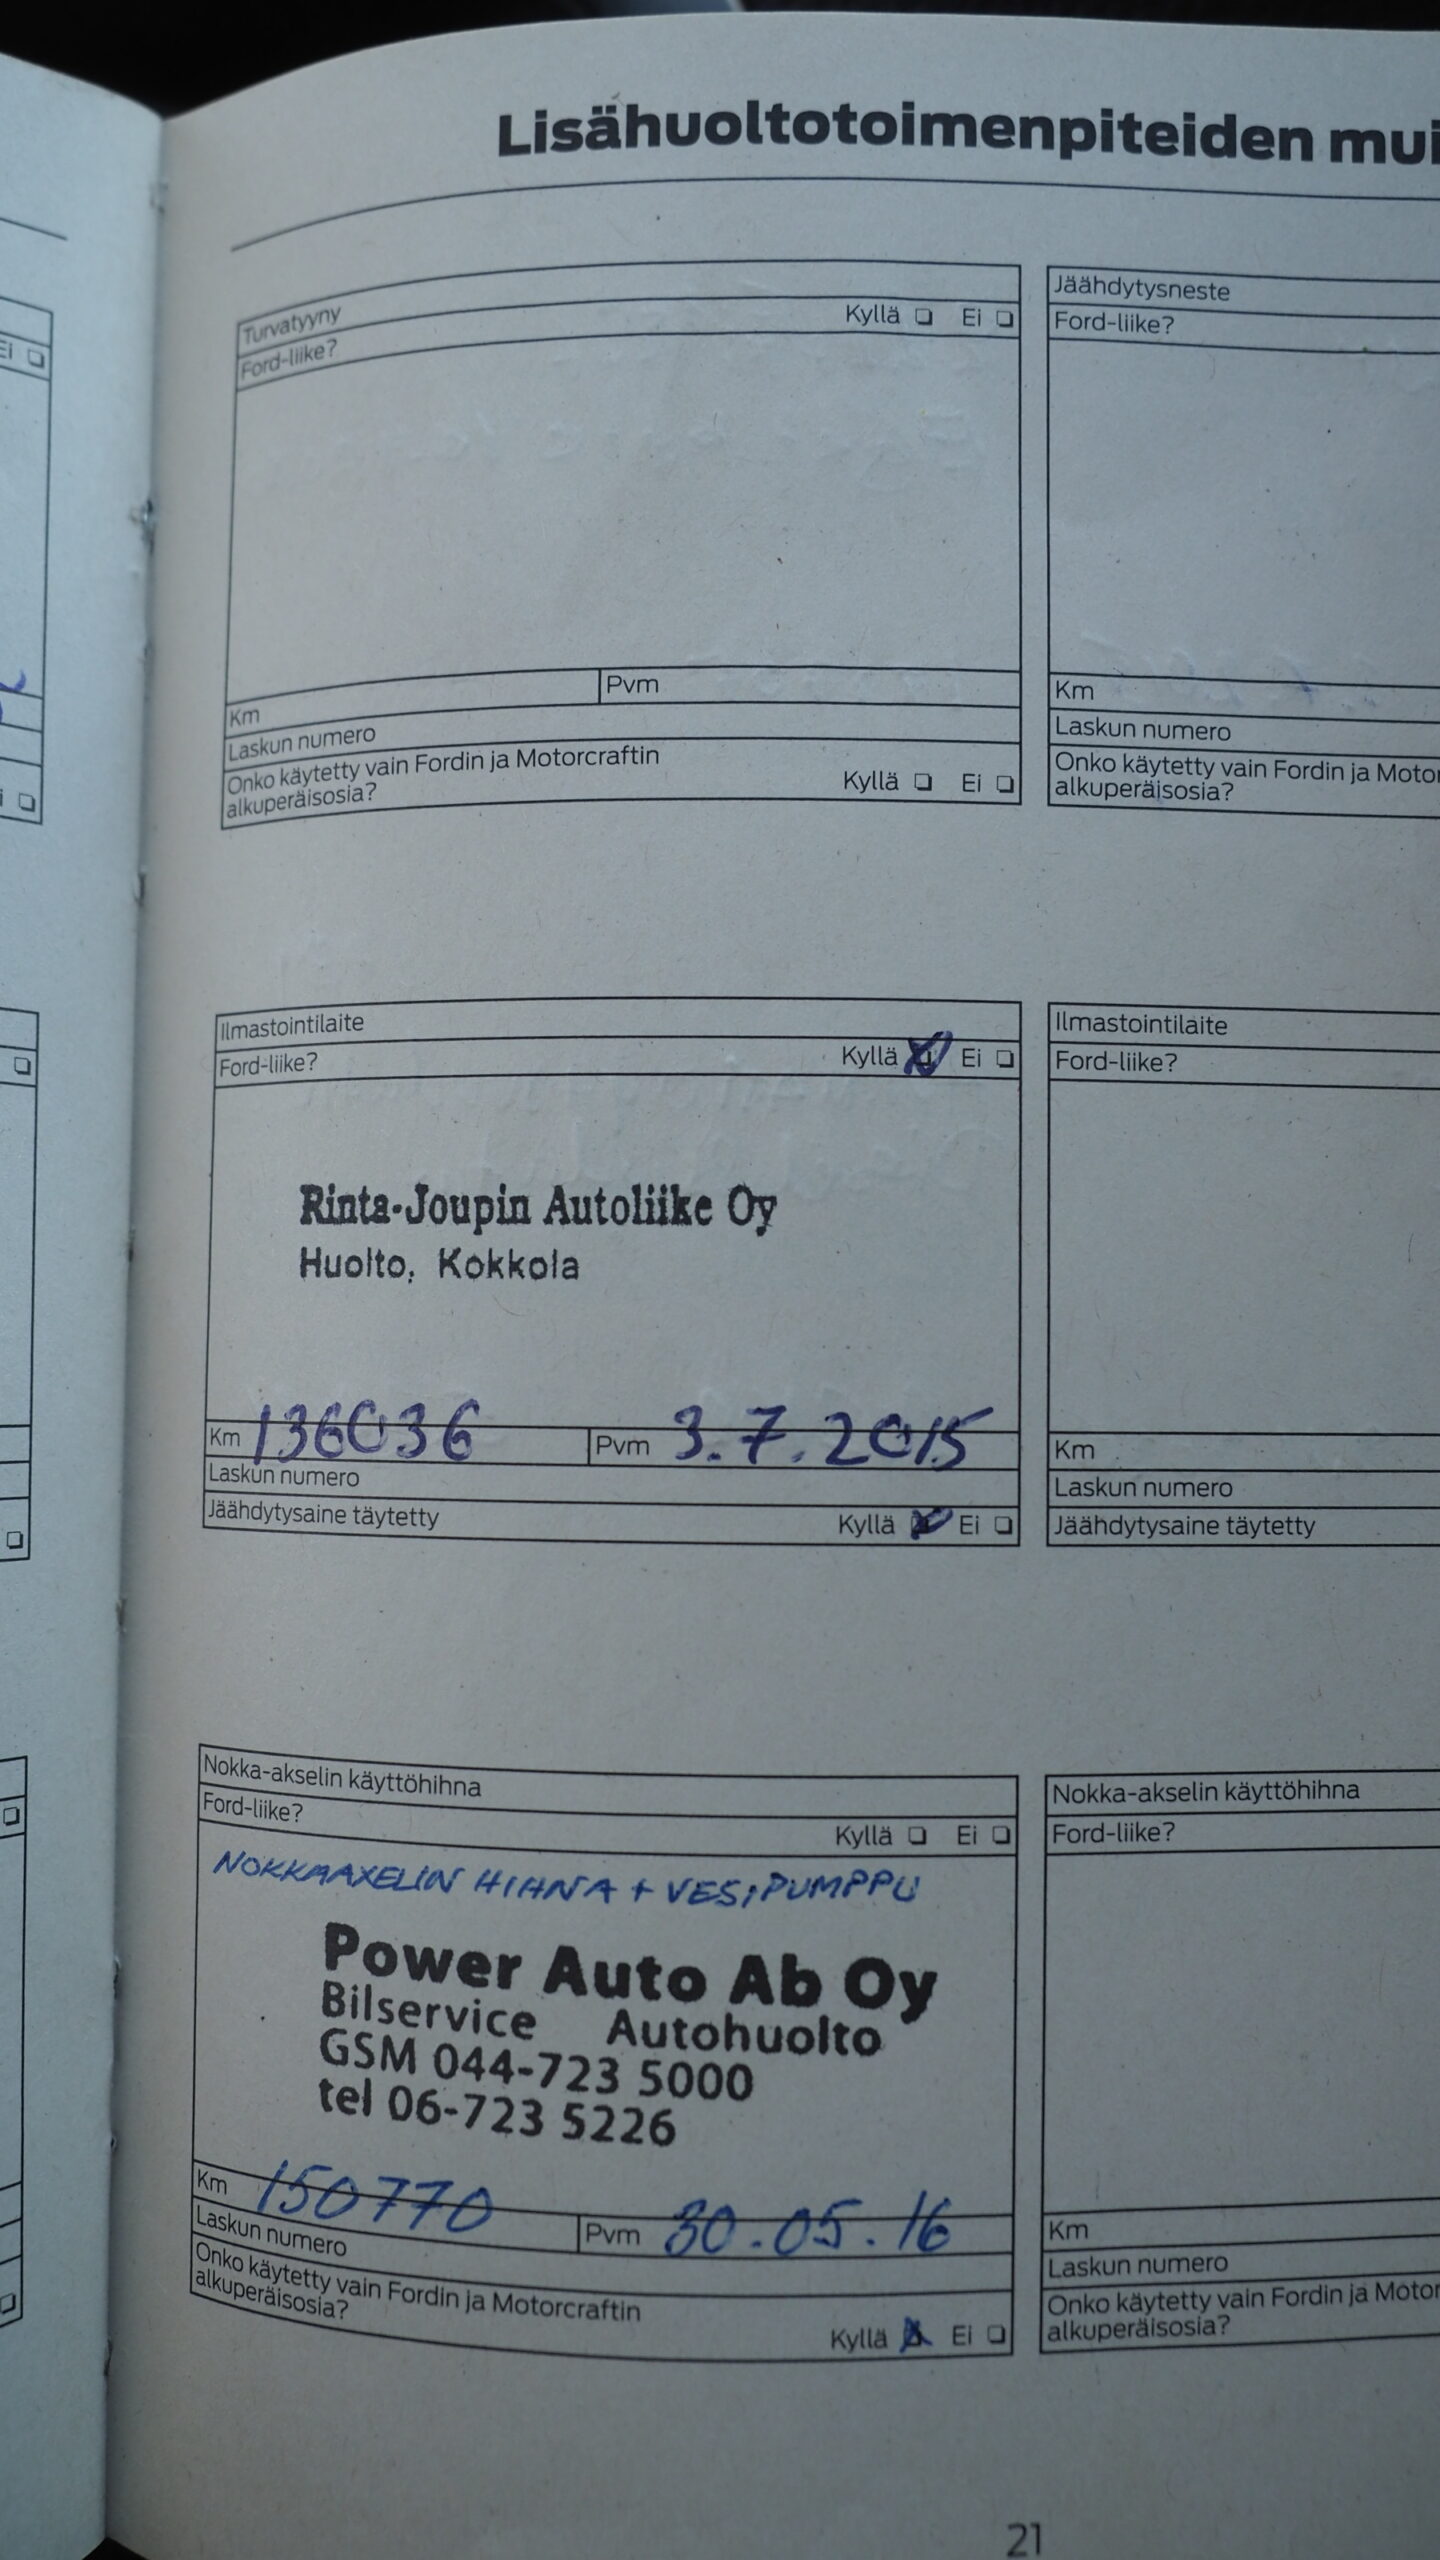 Lisähuoltotoimenpiteiden
Turvatyyny
Ford-liike? Kyllä Ei
Km Pvm
Laskun numero
Onko käytetty vain Fordin ja Motorcraftin
alkuperäisosia? Kyllä Ei
Jäähdytysneste
Ford-liike?
Km
Laskun numero
Onko käytetty vain Fordin ja
alkuperäisosia?
Ilmastointilaite
Ford-liike? Kyllä Ei
Rinta-Joupin Autoliike Oy
Huolto, Kokkola
Km 136036 Pvm 3.7.2015
Laskun numero
Jäähdytysaine täytetty Kyllä Ei
Ilmastointilaite
Ford-liike?
Km
Laskun numero
Jäähdytysaine täytetty
Nokka-akselin käyttöhihna
Ford-liike? Kyllä Ei
NOKKAAXELIN HIHNA + VESIPUMPPU
Power Auto Ab Oy
Bilservice Autohuolto
GSM 044-723 5000
tel 06-723 5226
Km 150770 Pvm 30.05.16
Laskun numero
Onko käytetty vain Fordin ja Motorcraftin
alkuperäisosia? Kyllä Ei
Nokka-akselin käyttöhihna
Ford-liike?
Km
Laskun numero
Onko käytetty vain Fordin ja
alkuperäisosia?
Ei
21